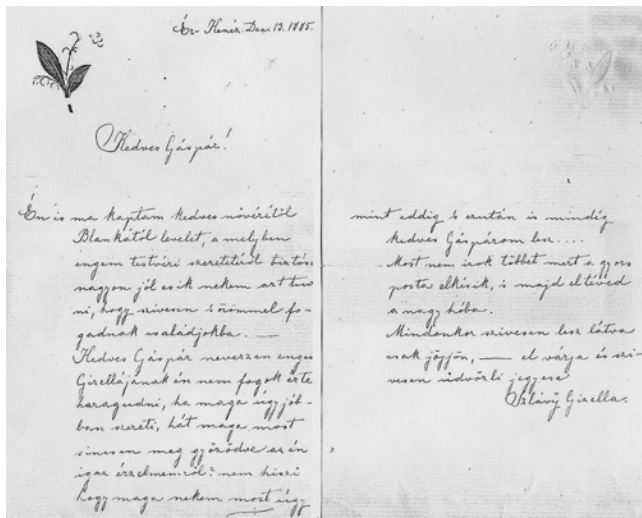 Ér Kenéz. Dec. 13. 1885.
Kedves Gáspár!
Én is ma kaptam kedves nővérétöl
Blankától levelet, a melyben
engem testvéri szeretetéröl biztósit
nagyon jól esik nekem azt tud
ni, hogy szivesen s örömmel fo-
gadnak családjokba. —
Kedves Gáspár nevezzen engem
Gizellájának én nem fogok érte
haragudni, ha maga úgy job-
ban szereti, hát maga most
sincsen meg győződve az én
igaz érzelmemről? nem hiszi
hogy maga nekem most úgy
mint eddig s ezután is mindég
kedves Gáspárom lesz....
Most nem irok többet mert a gyors
posta elkésik, is majd eltéved
a nagy hóba.
Mindenkor szivesen lesz látva
csak jöjjön, — el várja és szi-
vesen üdvözli jegyese
Szlávy Gizella.